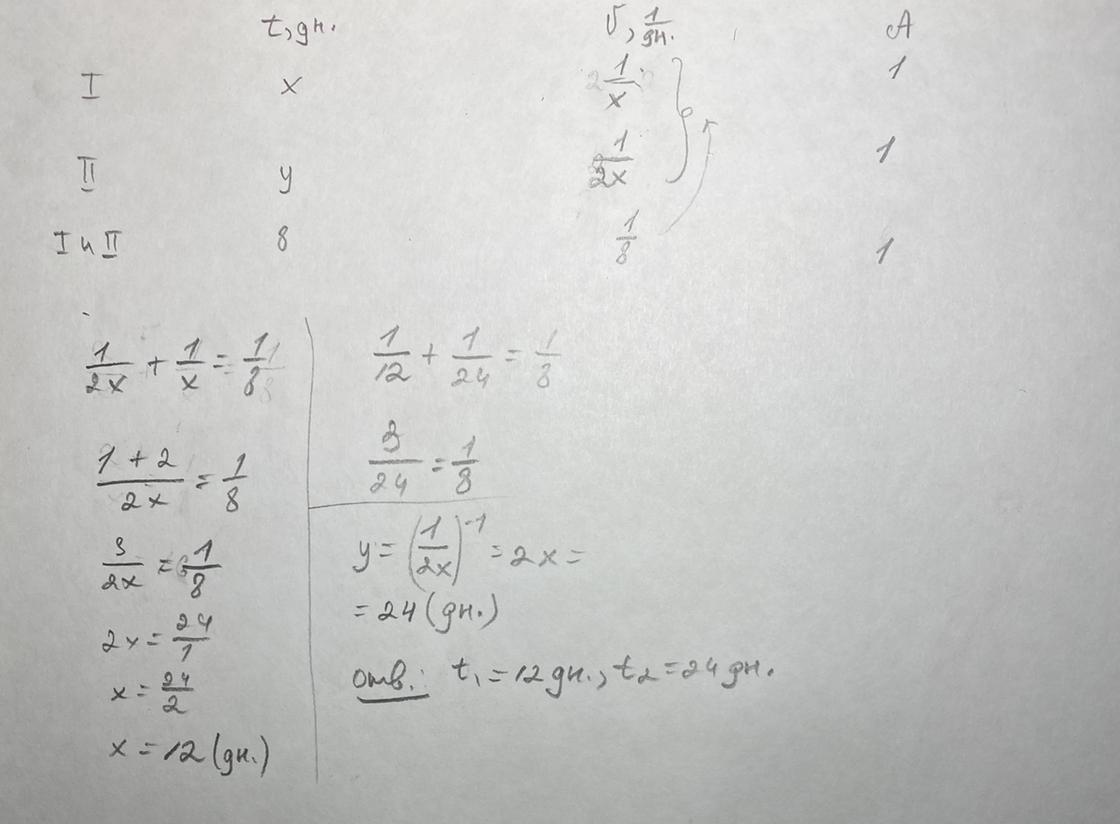 t, дн. V, 1/дн. A
I x 1/x 1
II y 1/2x 1
I и II 8 1/8 1
1/2x + 1/x = 1/8
(1 + 2)/2x = 1/8
3/2x = 1/8
2x = 24/1
x = 24/2
x = 12 (дн.)
1/12 + 1/24 = 1/8
3/24 = 1/8
y = (1/2x)^-1 = 2x =
= 24 (дн.)
Отв.: t₁ = 12 дн., t₂ = 24 дн.